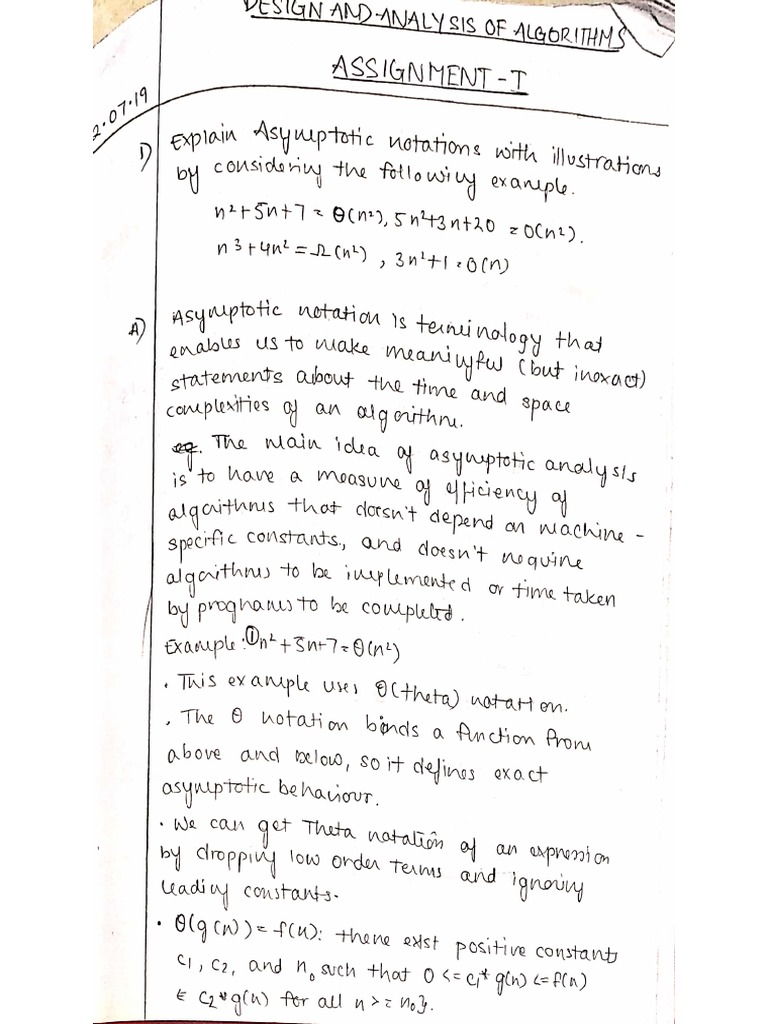 DESIGN AND ANALYSIS OF ALGORITHMS
ASSIGNMENT - I
2.07.19
1) Explain Asymptotic notations with illustrations
by considering the following example.
n2+5n+7 = θ(n2), 5n2+3n+20 = O(n2).
n3+4n2 = Ω(n2), 3n2+1 = O(n)
A) Asymptotic notation is terminology that
enables us to make meaningful (but inexact)
statements about the time and space
complexities of an algorithm.
eg. The main idea of asymptotic analysis
is to have a measure of efficiency of
algorithms that doesn't depend on machine -
specific constants., and doesn't require
algorithms to be implemented or time taken
by programs to be completed.
Example: ① n2+5n+7=θ(n2)
. This example uses θ(theta) notation.
. The θ notation binds a function from
above and below, so it defines exact
asymptotic behaviour.
. We can get Theta notation of an expression
by dropping low order terms and ignoring
leading constants.
. θ(g(n)) = f(n): there exist positive constants
c1, c2, and n0 such that 0 <= c1* g(n) <= f(n)
≤ c2*g(n) for all n >= n0}.